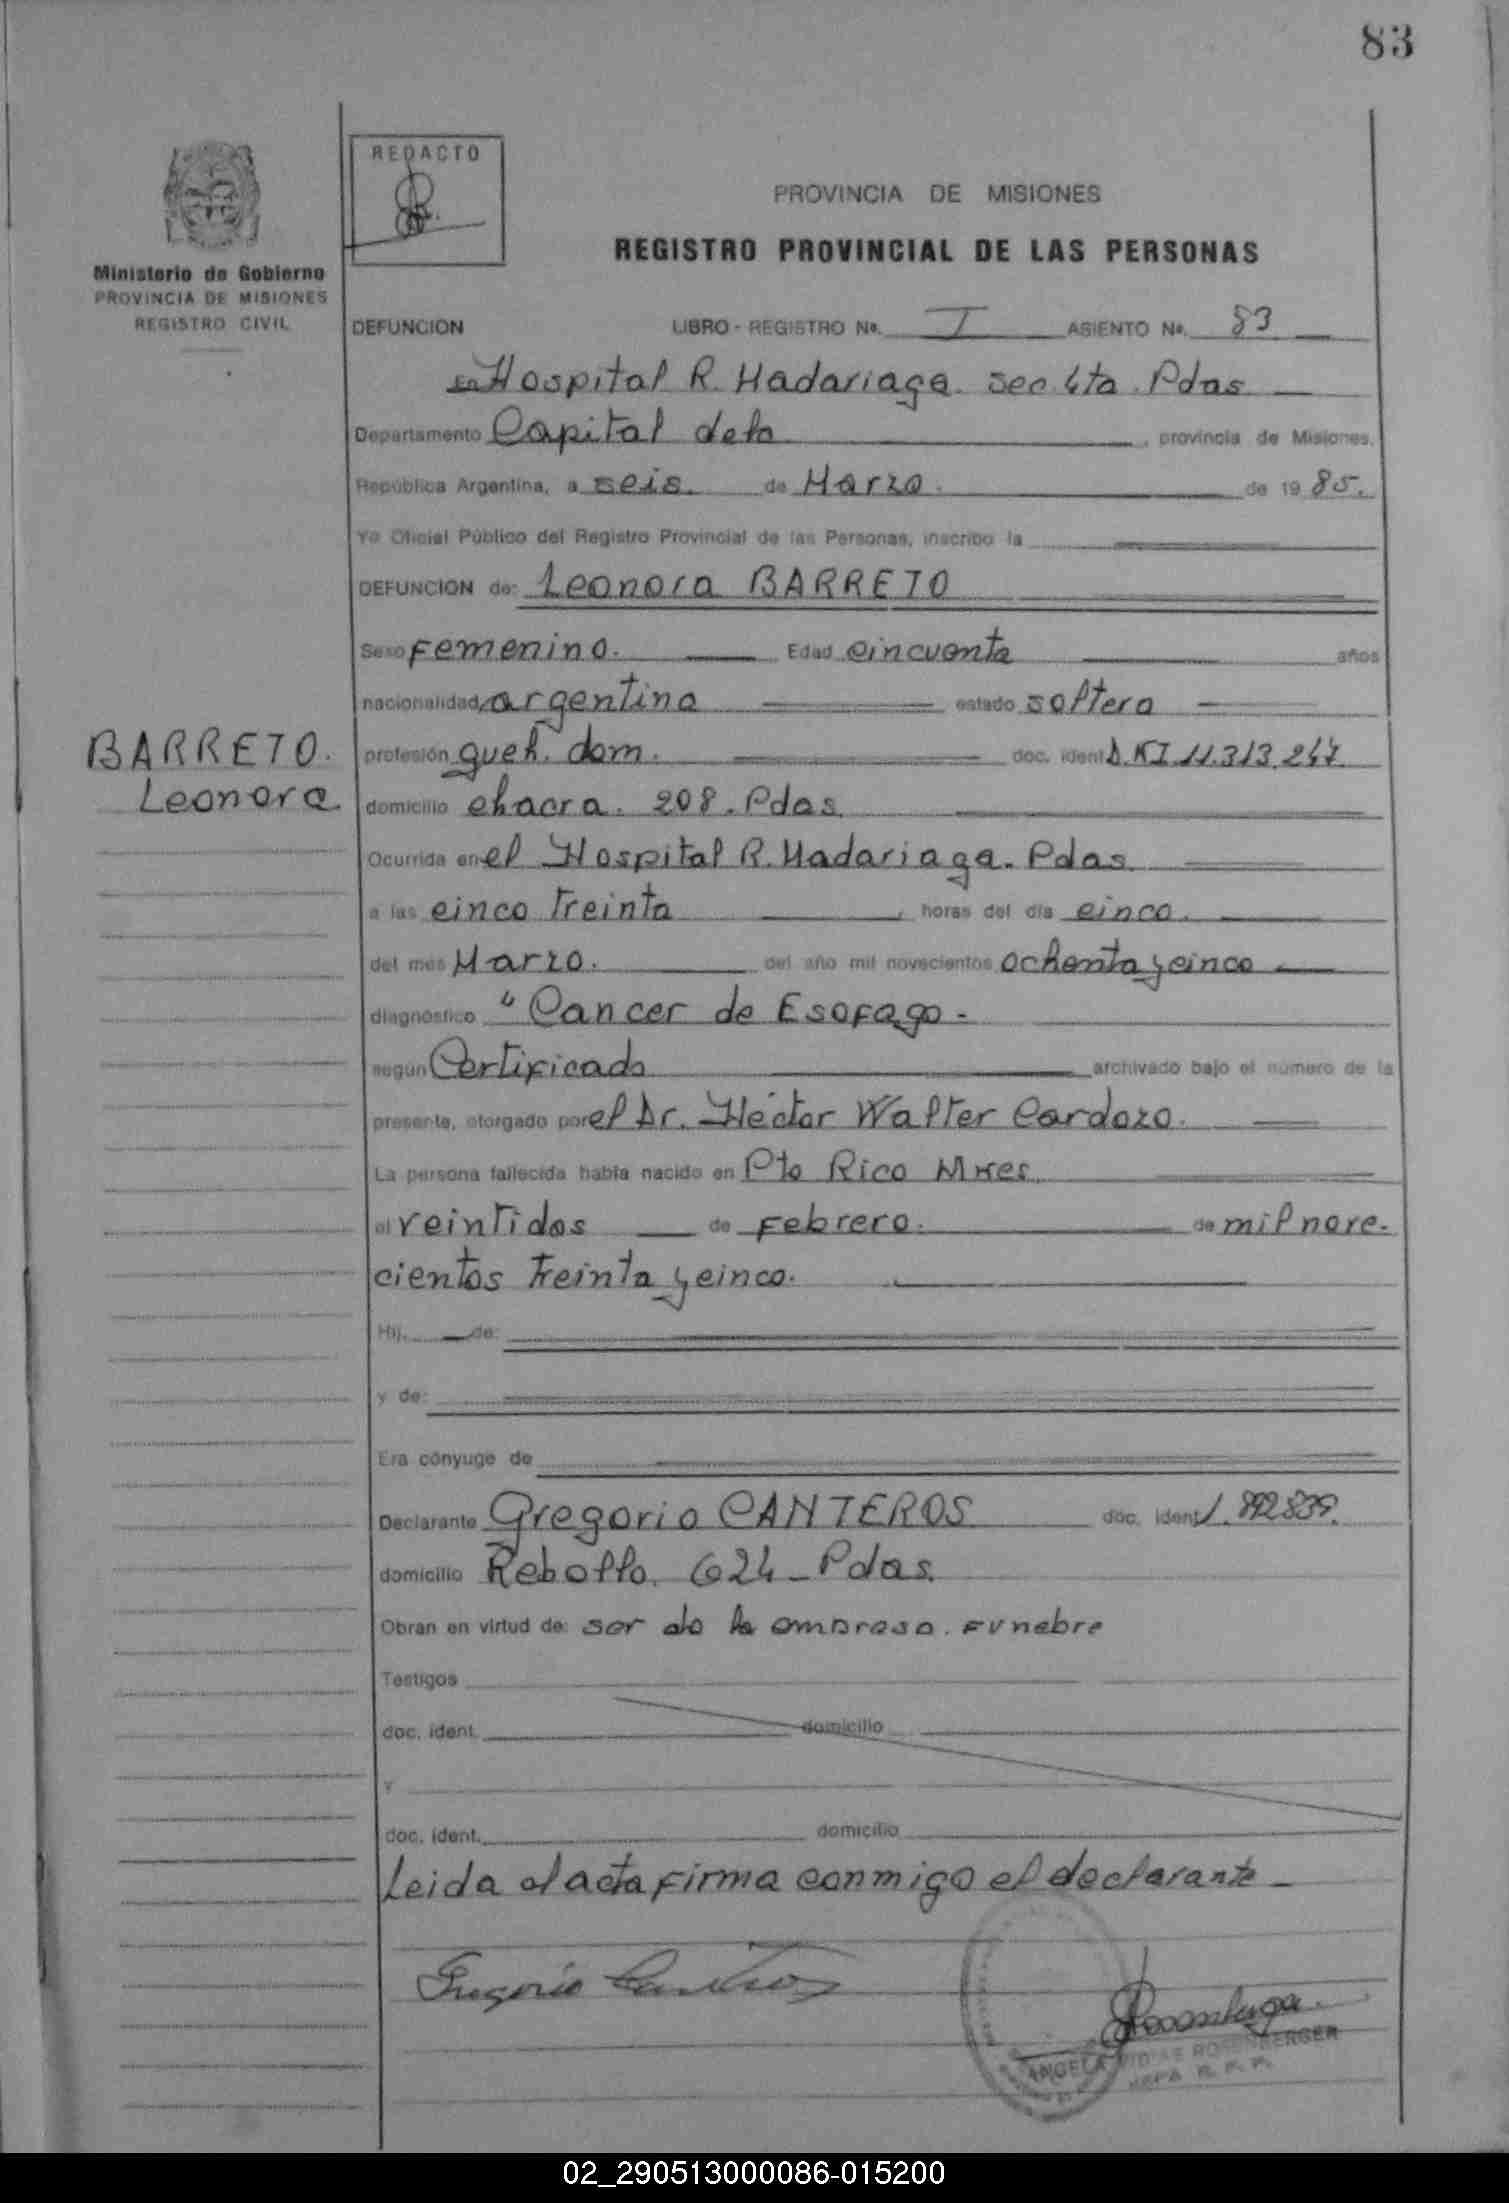 83
REDACTO
PROVINCIA DE MISIONES
REGISTRO PROVINCIAL DE LAS PERSONAS
Ministerio de Gobierno
PROVINCIA DE MISIONES
REGISTRO CIVIL
DEFUNCION LIBRO - REGISTRO Nº. I ASIENTO Nº. 83
En Hospital R. Madariaga. sec. 4ta. Pdas
Departamento Capital dela , provincia de Misiones,
República Argentina, a seis. de Marzo. de 19 85.
Yo Oficial Público del Registro Provincial de las Personas, inscribo la
DEFUNCION de: Leonora BARRETO
Sexo Femenino. Edad cincuenta años
nacionalidad argentina estado soltera
BARRETO.
Leonora
profesión queh. dom. doc. ident D.N.I. 11.313.247
domicilio chacra. 208. Pdas.
Ocurrida en el Hospital R. Madariaga. Pdas.
a las cinco treinta , horas del día cinco.
del mes Marzo. del año mil novecientos ochenta y cinco
diagnóstico " Cancer de Esofago -
según Certificado archivado bajo el número de la
presente, otorgado por el Dr. Héctor Walter Cardozo.
La persona fallecida había nacido en Pto Rico Mnes
el veintidos de Febrero. de mil nove-
cientos treinta y cinco.
Hij. de:
y de:
Era cónyuge de
Declarante Gregorio CANTEROS doc. ident 1.892.839.
domicilio Rebollo. 624 - Pdas.
Obran en virtud de: ser de la empresa. Funebre
Testigos
doc. ident. domicilio
Y
doc. ident. domicilio
Leida el acta firma conmigo el declarante -
Gregorio Canteros
ANGELA ROSENBERGER
JEFA R. P. P.
02_290513000086-015200